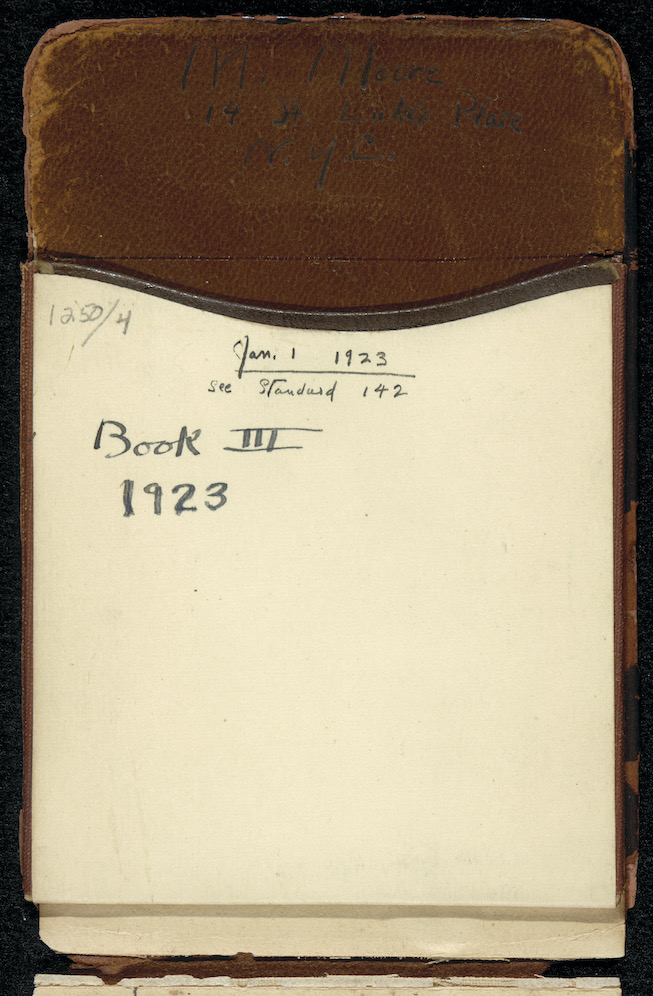 M. Moore
14 St. Luke's Place
N.Y.C.
1250/4
Jan. 1 1923
see Standard 142
Book III
1923